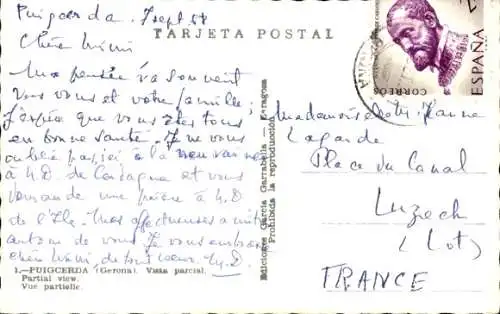 Puigcerda. 7 sept 58
TARJETA POSTAL
Chère Mimi
Ma pensée va souvent
vers vous et votre famille,
J'espère que vous êtes tous
en bonne santé. Je ne vous
oublie pas ici à la
à N.D. de Cerdagne et vous
une prière à N.D
de l'Ile. Mes affectueuses
autour de vous. Je vous embrasse
chère Mimi, de tout coeur. M.D.
1.—PUIGCERDA (Gerona). Vista parcial.
Partial view.
Vue partielle.
Ediciones García Garrabella — Zaragoza
Prohibida la reproducción
CORREOS
ESPAÑA
Mademoiselle Jeanne
Lagarde
Place du Canal
Luzech
(Lot)
FRANCE